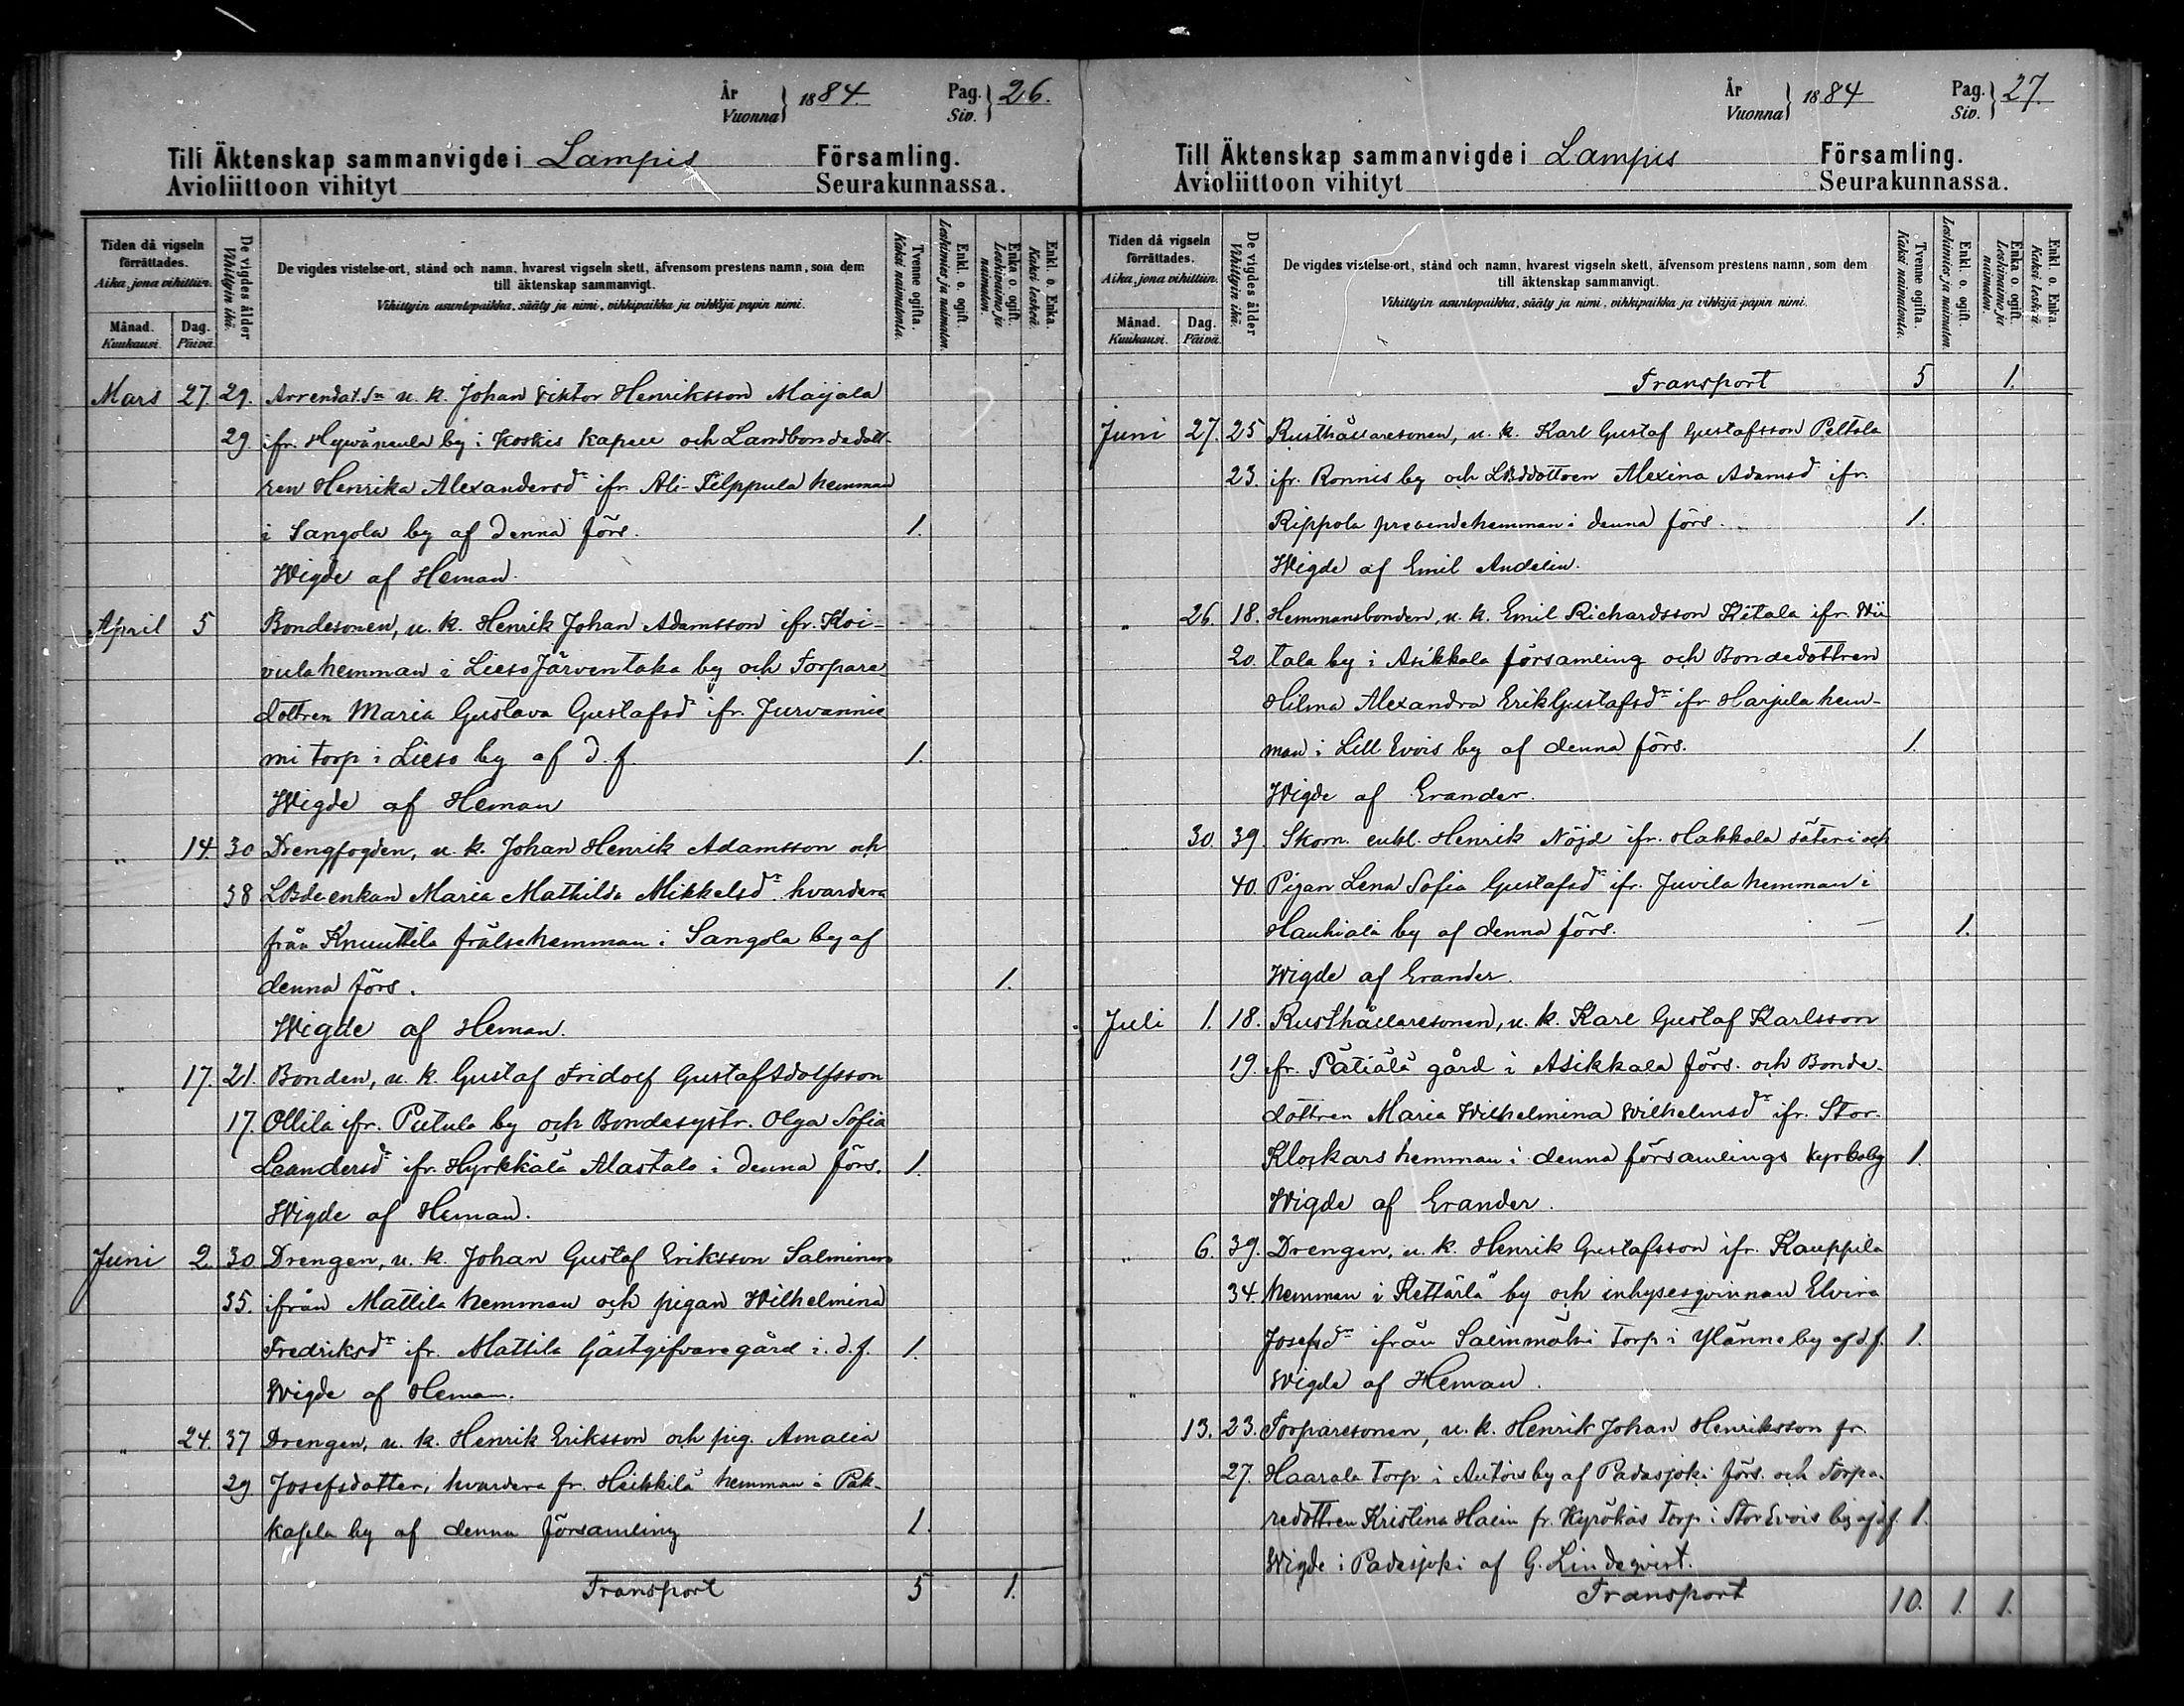 År
Vuonna } 1884. Pag.
Siv. } 26.
Till Äktenskap sammanvigde i Lampis Församling.
Avioliittoon vihityt Seurakunnassa.
Tiden då vigseln förrättades.
Aika, jona vihittiin.
Månad.
Kuukausi.
Dag.
Päivä.
De vigdes ålder
Vihittyin ikä.
De vigdes vistelse-ort, stånd och namn, hvarest vigseln skett, äfvensom prestens namn, som dem
till äktenskap sammanvigt.
Vihittyin asuntopaikka, sääty ja nimi, vihkipaikka ja vihkijä papin nimi.
Tvenne ogifta.
Kaksi naimatonta.
Enkl. o. ogift.
Leskimies ja naimaton.
Enka o. ogift.
Leskinaine ja naimaton.
Enkl. o. Enka.
Kaksi leskeä.
Mars 27 29. Arrendat.sn u. k. Johan Viktor Henriksson Maijala
29. ifr. by i Koskis kapell och Landbondedott-
ren Henrika Alexandersdr ifr. Ali-Filppula hemman
i Sangola by af denna förs. 1.
Wigde af Heman.
April 5 Bondesonen, u. k. Henrik Johan Adamsson ifr. Koi-
vula hemman i Lieso Järventaka by och Torpare
dottren Maria Gustava Gustafsd. ifr. Jurvannie
mi torp i Lieso by af d. f. 1.
Wigde af Heman
" 14. 30 Drengfogden, u. k. Johan Henrik Adamsson och
38 LBdeenkan Maria Mathilda Mikkelsdr. hvardera
från Knuuttila frälsehemman i Sangola by af
denna förs. 1.
Wigde af Heman.
" 17. 21. Bonden, u. k. Gustaf Fridolf GustafAdolfsson
17. Ollila ifr. Putula by och Bondesystr. Olga Sofia
Leandersdr ifr. Hyrkkälä Alastalo i denna förs. 1.
Wigde af Heman.
Juni 2. 30 Drengen, u. k. Johan Gustaf Eriksson Salminen
35. ifrån Mattila hemman och pigan Wilhelmina
Fredriksdr ifr. Mattila Gästgifvaregård i. d. f. 1.
Wigde af Heman.
" 24. 37 Drengen, u. k. Henrik Eriksson och pig. Amalia
29 Josefsdotter, hvardera fr. Heikkilä hemman i Pak-
kasela by af denna församling 1.
Transport 5 1.
År
Vuonna } 1884 Pag.
Siv. } 27.
Till Äktenskap sammanvigde i Lampis Församling.
Avioliittoon vihityt Seurakunnassa.
Tiden då vigseln förrättades.
Aika, jona vihittiin.
Månad.
Kuukausi.
Dag.
Päivä.
De vigdes ålder
Vihittyin ikä.
De vigdes vistelse-ort, stånd och namn, hvarest vigseln skett, äfvensom prestens namn, som dem
till äktenskap sammanvigt.
Vihittyin asuntopaikka, sääty ja nimi, vihkipaikka ja vihkijä papin nimi.
Tvenne ogifta.
Kaksi naimatonta.
Enkl. o. ogift.
Leskimies ja naimaton.
Enka o. ogift.
Leskinaine ja naimaton.
Enkl. o. Enka.
Kaksi leskeä.
Transport 5 1.
Juni 27. 25 Rusthållaresonen, u. k. Karl Gustaf Gustafsson Peltola
23. ifr. Ronnis by och LBddottren Alexina Adamsd ifr.
Rippola prevendehemman i denna förs. 1.
Wigde af Emil Andelin.
" 26. 18. Hemmansbonden, u. k. Emil Richardsson Kétala ifr. Wii
20. tala by i Asikkala församling och Bondedottren
Hilma Alexandra ErikGustafsdr ifr Harjula hem-
man i Lill Evois by af denna förs. 1.
Wigde af Erander.
30. 39. Skom. enkl. Henrik Nöjd ifr. Hakkala säteri och
40. Pigan Lena Sofia Gustafsdr ifr. Juvila hemman i
Hauhiala by af denna förs. 1.
Wigde af Erander.
Juli 1. 18. Rusthållaresonen, u. k. Karl Gustaf Karlsson
19. ifr. Pätiälä gård i Asikkala förs. och Bonde-
dottren Maria Wilhelmina Wilhelmsdr ifr. Stor-
Klockars hemman i denna församlings kyrkoby 1.
Wigde af Erander.
" 6. 39. Drengen, u. k. Henrik Gustafsson ifr. Kauppila
34. hemman i Kettärlä by och inhysesqvinnan Elvira
Josefsdr ifrån torp i Ylänne by af d. f. 1.
" Wigde af Heman.
13. 23. Torparesonen, u. k. Henrik Johan Henriksson fr.
27. Haarala torp i Autois by af Padasjoki förs. och Torpa-
redottren Kristina Halin fr. torp i Stor Evois by af d. f. 1.
Wigde i Padasjoki af G. Lindeqvist.
Transport 10. 1. 1.